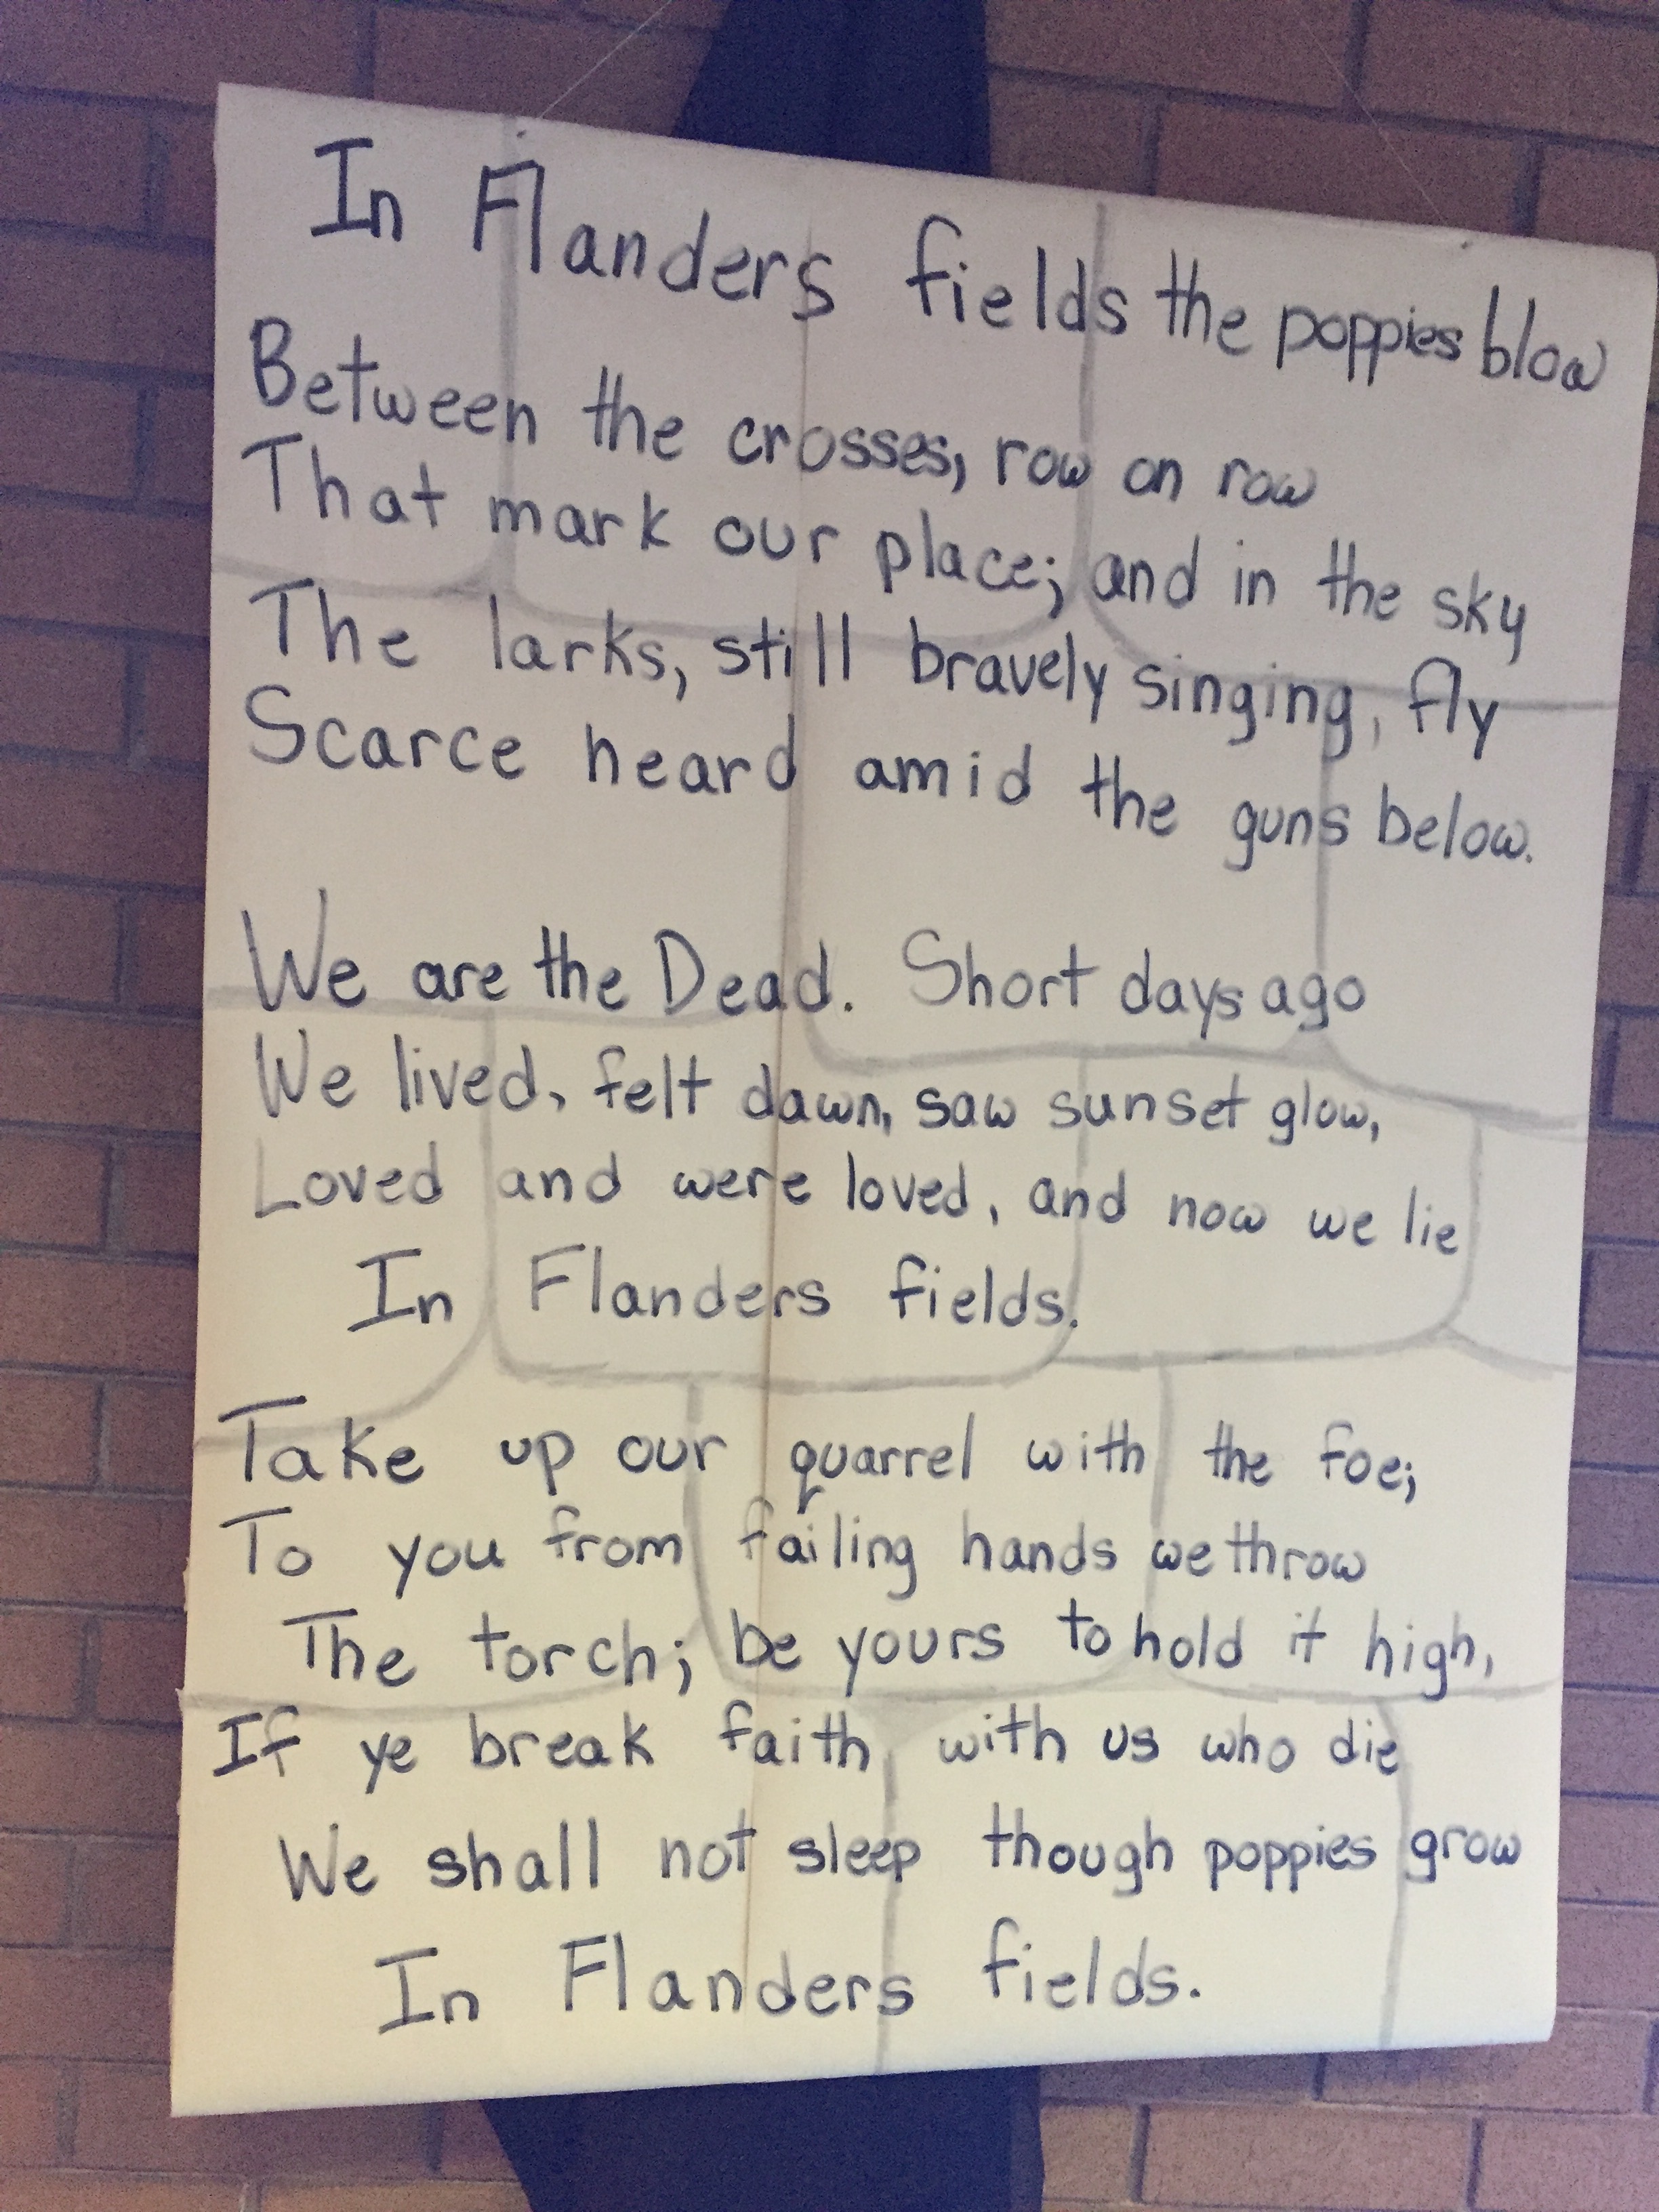 In Flanders fields the poppies blow
Between the crosses, row on row
That mark our place; and in the sky
The larks, still bravely singing, fly
Scarce heard amid the guns below.
We are the Dead. Short days ago
We lived, felt dawn, saw sunset glow,
Loved and were loved, and now we lie
In Flanders fields.
Take up our quarrel with the foe;
To you from failing hands we throw
The torch; be yours to hold it high,
If ye break faith with us who die
We shall not sleep though poppies grow
In Flanders fields.